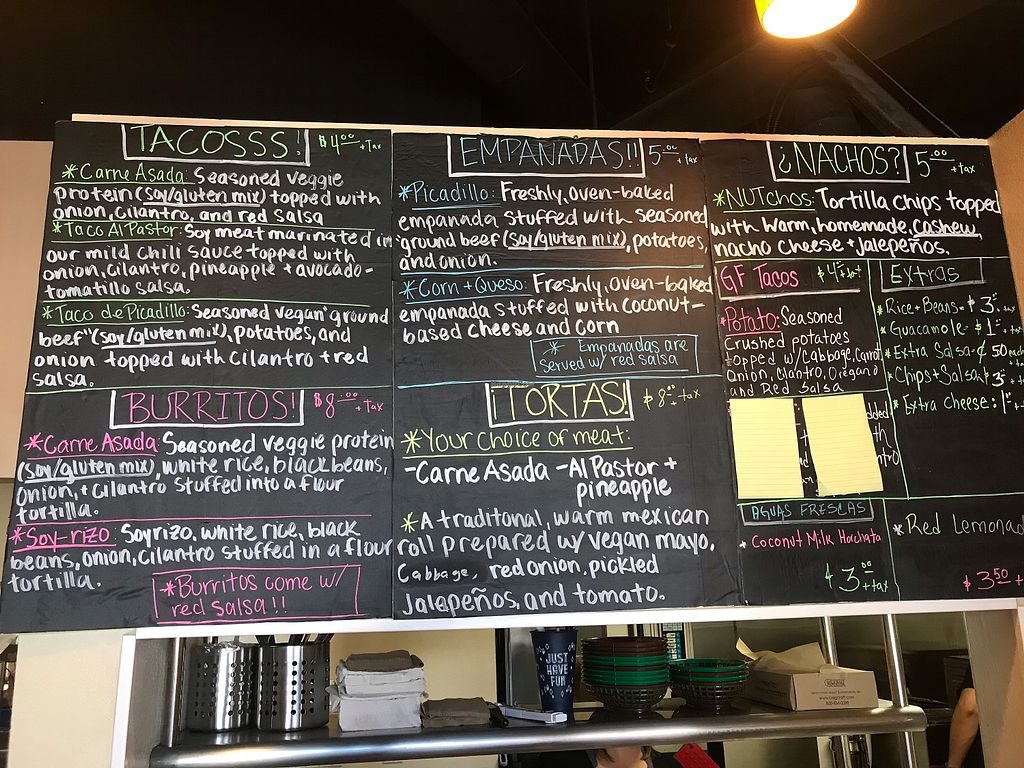 TACOSSS! $4.00 + Tax
*Carne Asada: Seasoned veggie
protein (soy/gluten mix) topped with
onion, cilantro, and red salsa
*Taco Al Pastor: Soy meat marinated in
our mild chili sauce topped with
onion, cilantro, pineapple + avocado-
tomatillo salsa.
*Taco de Picadillo: Seasoned vegan "ground
beef" (soy/gluten mix), potatoes, and
onion topped with cilantro + red
salsa.
BURRITOS! $8.00 + tax
*Carne Asada: Seasoned veggie protein
(soy/gluten mix), white rice, black beans,
onion, + cilantro stuffed into a flour
tortilla.
*Soy-rizo: Soyrizo, white rice, black
beans, onion, cilantro stuffed in a flour
tortilla.
*Burritos come w/
red salsa!!
EMPANADAS!! 5.00 + tax
*Picadillo: Freshly, oven-baked
empanada stuffed with seasoned
ground beef (soy/gluten mix), potatoes,
and onion.
*Corn + Queso: Freshly, oven-baked
empanada stuffed with coconut-
based cheese and corn
* Empanadas are
served w/ red salsa
¡TORTAS! $8.00 + tax
*Your choice of meat:
-Carne Asada -Al Pastor +
pineapple
*A traditonal, warm mexican
roll prepared w/ vegan mayo,
Cabbage, red onion, pickled
Jalepeños, and tomato.
¿NACHOS? 5.00 + tax
*NUTchos: Tortilla chips topped
with warm, homemade, cashew
nacho cheese + jalepeños.
GF Tacos
*Potato: Seasoned
Crushed potatoes
topped w/ Cabbage, Carrot
Onion, Cilantro, Oregano
and Red Salsa
Extras
*Rice + Beans - $3.
*Guacamole - $1.
*Extra Salsa - ¢ 50 each
*Chips + Salsa $3.
*Extra Cheese: 1
AGUAS FRESCAS
* Coconut Milk Horchata
$3.00 + tax
*Red Lemonad
$3.50 +
JUST
HAVE
FUN